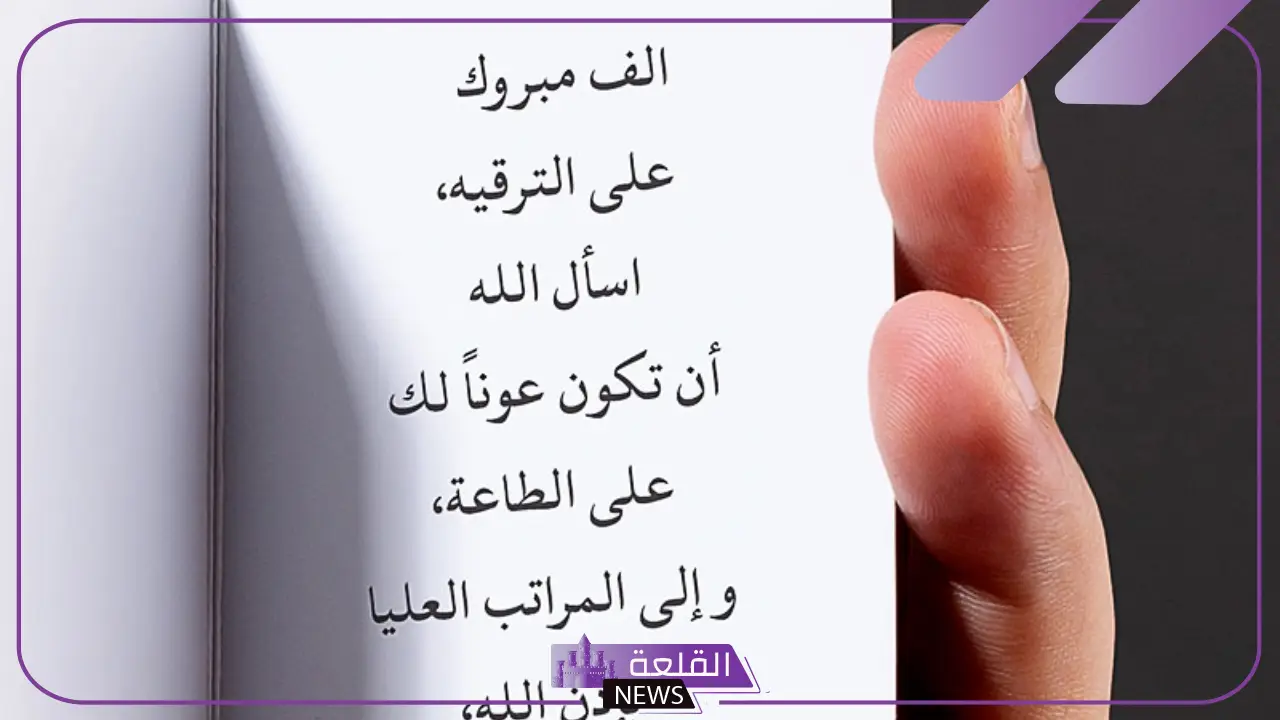 الف مبروك
على الترقيه،
اسأل الله
أن تكون عوناً لك
على الطاعة،
و إلى المراتب العليا
الله،
القلعة
NEWS